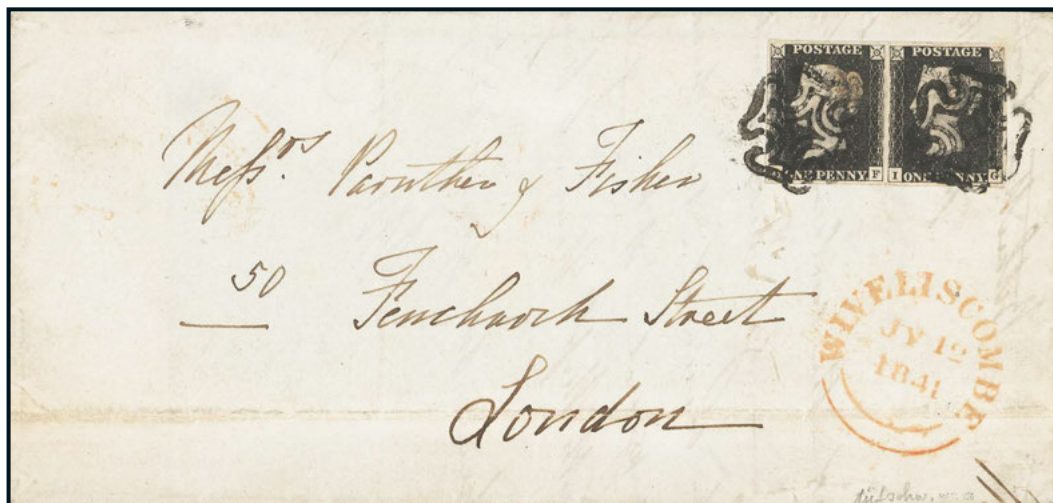 POSTAGE POSTAGE
NE PENNY F I ONE PENNY G
Messrs. Parnther & Fisher
50 Fenchurch Street
London
WIVELISCOMBE
JY 12
1841